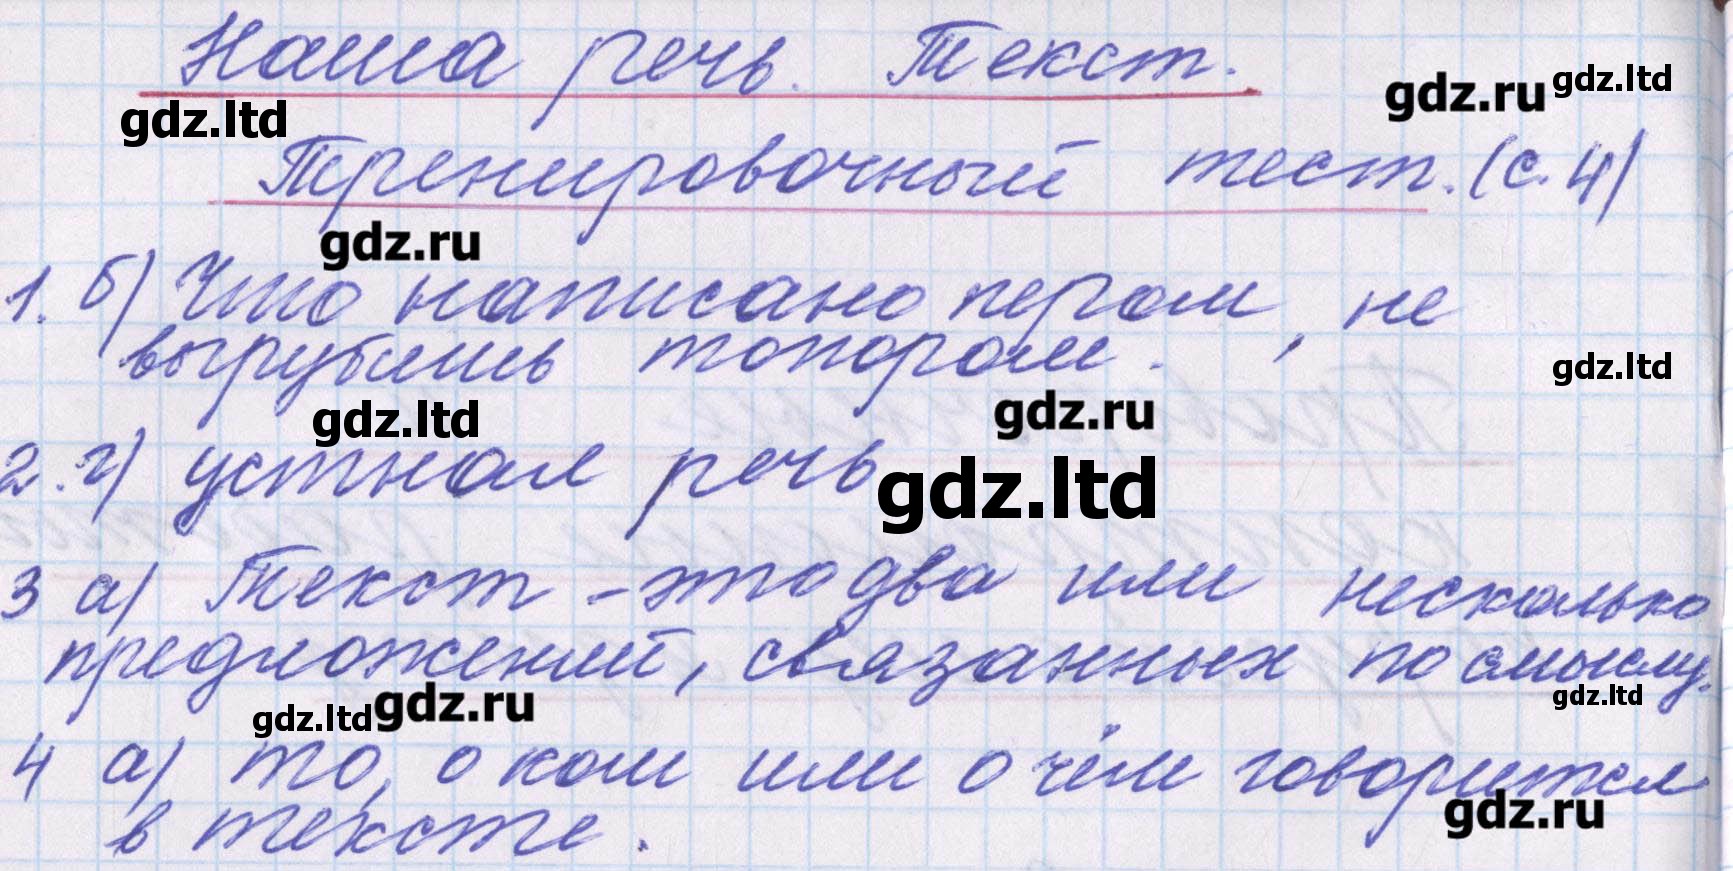 Наша речь. Текст.
gdz.ru gdz.ltd
gdz.ltd
Тренировочный тест. (с. 4)
gdz.ru
1. б) Что написано пером, не
вырубишь топором.
gdz.ltd
gdz.ltd gdz.ru
2. г) устная речь
gdz.ltd
3 а) Текст - это два или несколько
предложений, связанных по смыслу.
gdz.ltd gdz.ru gdz.ltd
4 а) то, о ком или о чём говорится
gdz.ru
в тексте.